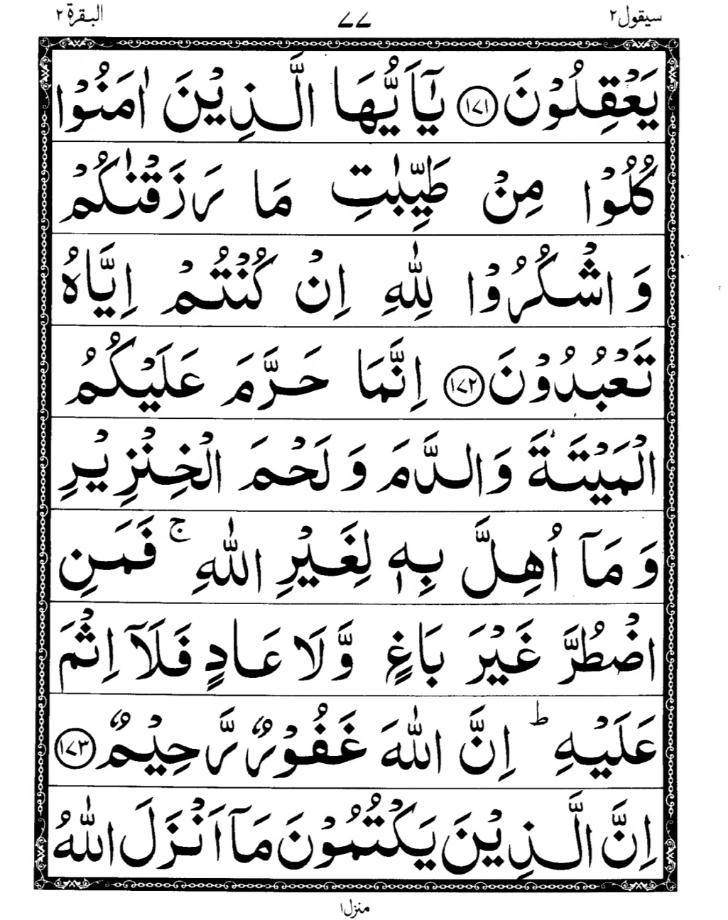 سيقول٢ ٧٧ البقرة ٢
يَعْقِلُوْنَ ﴿١٧١﴾ يٰٓاَيُّهَا الَّذِيْنَ اٰمَنُوْا
كُلُوْا مِنْ طَيِّبٰتِ مَا رَزَقْنٰكُمْ
وَ اشْكُرُوْا لِلّٰهِ اِنْ كُنْتُمْ اِيَّاهُ
تَعْبُدُوْنَ ﴿١٧٢﴾ اِنَّمَا حَرَّمَ عَلَيْكُمُ
الْمَيْتَةَ وَالدَّمَ وَ لَحْمَ الْخِنْزِيْرِ
وَ مَآ اُهِلَّ بِهٖ لِغَيْرِ اللّٰهِ ۚ فَمَنِ
اضْطُرَّ غَيْرَ بَاغٍ وَّلَا عَادٍ فَلَآ اِثْمَ
عَلَيْهِ ؕ اِنَّ اللّٰهَ غَفُوْرٌ رَّحِيْمٌ ﴿١٧٣﴾
اِنَّ الَّذِيْنَ يَكْتُمُوْنَ مَآ اَنْزَلَ اللّٰهُ
منزل١